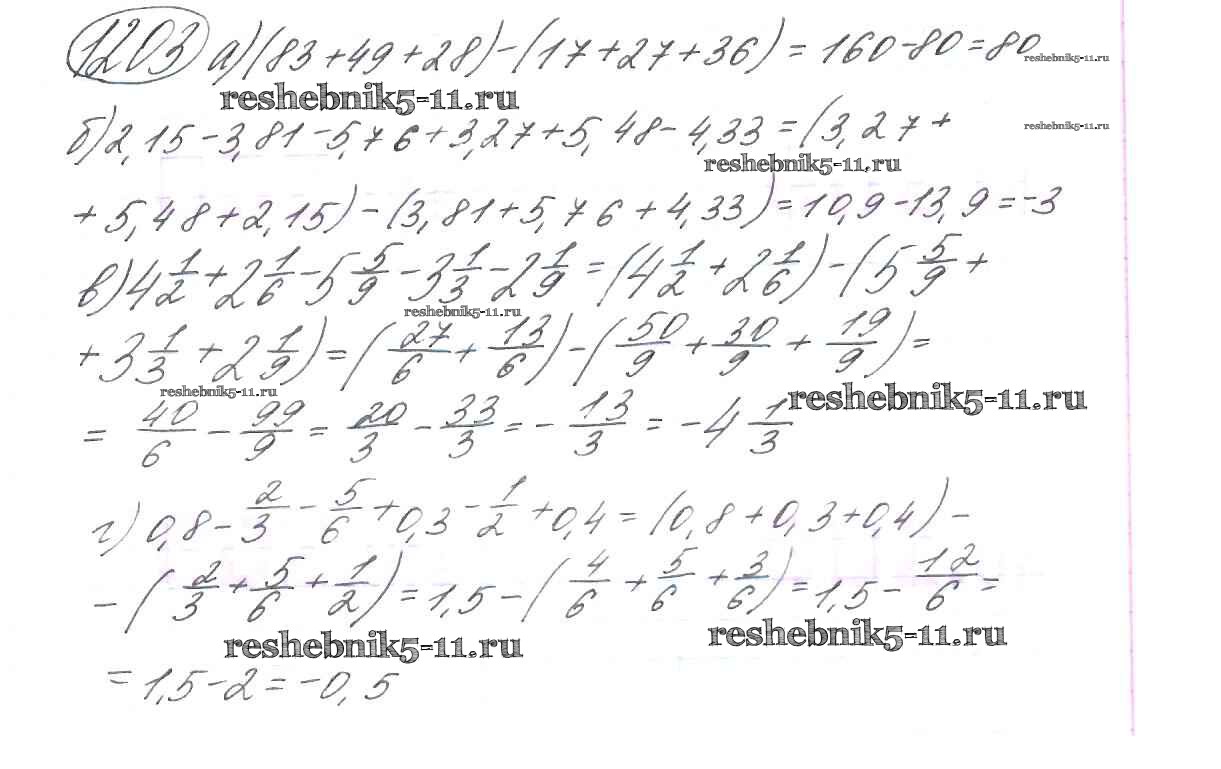 1203 а) (83+49+28)-(17+27+36) = 160-80=80
reshebnik5-11.ru
reshebnik5-11.ru
б) 2,15-3,81-5,76+3,27+5,48-4,33=(3,27+
reshebnik5-11.ru
reshebnik5-11.ru
+5,48+2,15)-(3,81+5,76+4,33)=10,9-13,9=-3
в) 4 1/2+2 1/6-5 5/9-3 1/3-2 1/9=(4 1/2+2 1/6)-(5 5/9+
reshebnik5-11.ru
+3 1/3+2 1/9)=(27/6+13/6)-(50/9+30/9+19/9)=
reshebnik5-11.ru
reshebnik5-11.ru
= 40/6-99/9=20/3-33/3=-13/3=-4 1/3
г) 0,8-2/3-5/6+0,3-1/2+0,4=(0,8+0,3+0,4)-
-(2/3+5/6+1/2)=1,5-(4/6+5/6+3/6)=1,5-12/6=
reshebnik5-11.ru
reshebnik5-11.ru
=1,5-2=-0,5